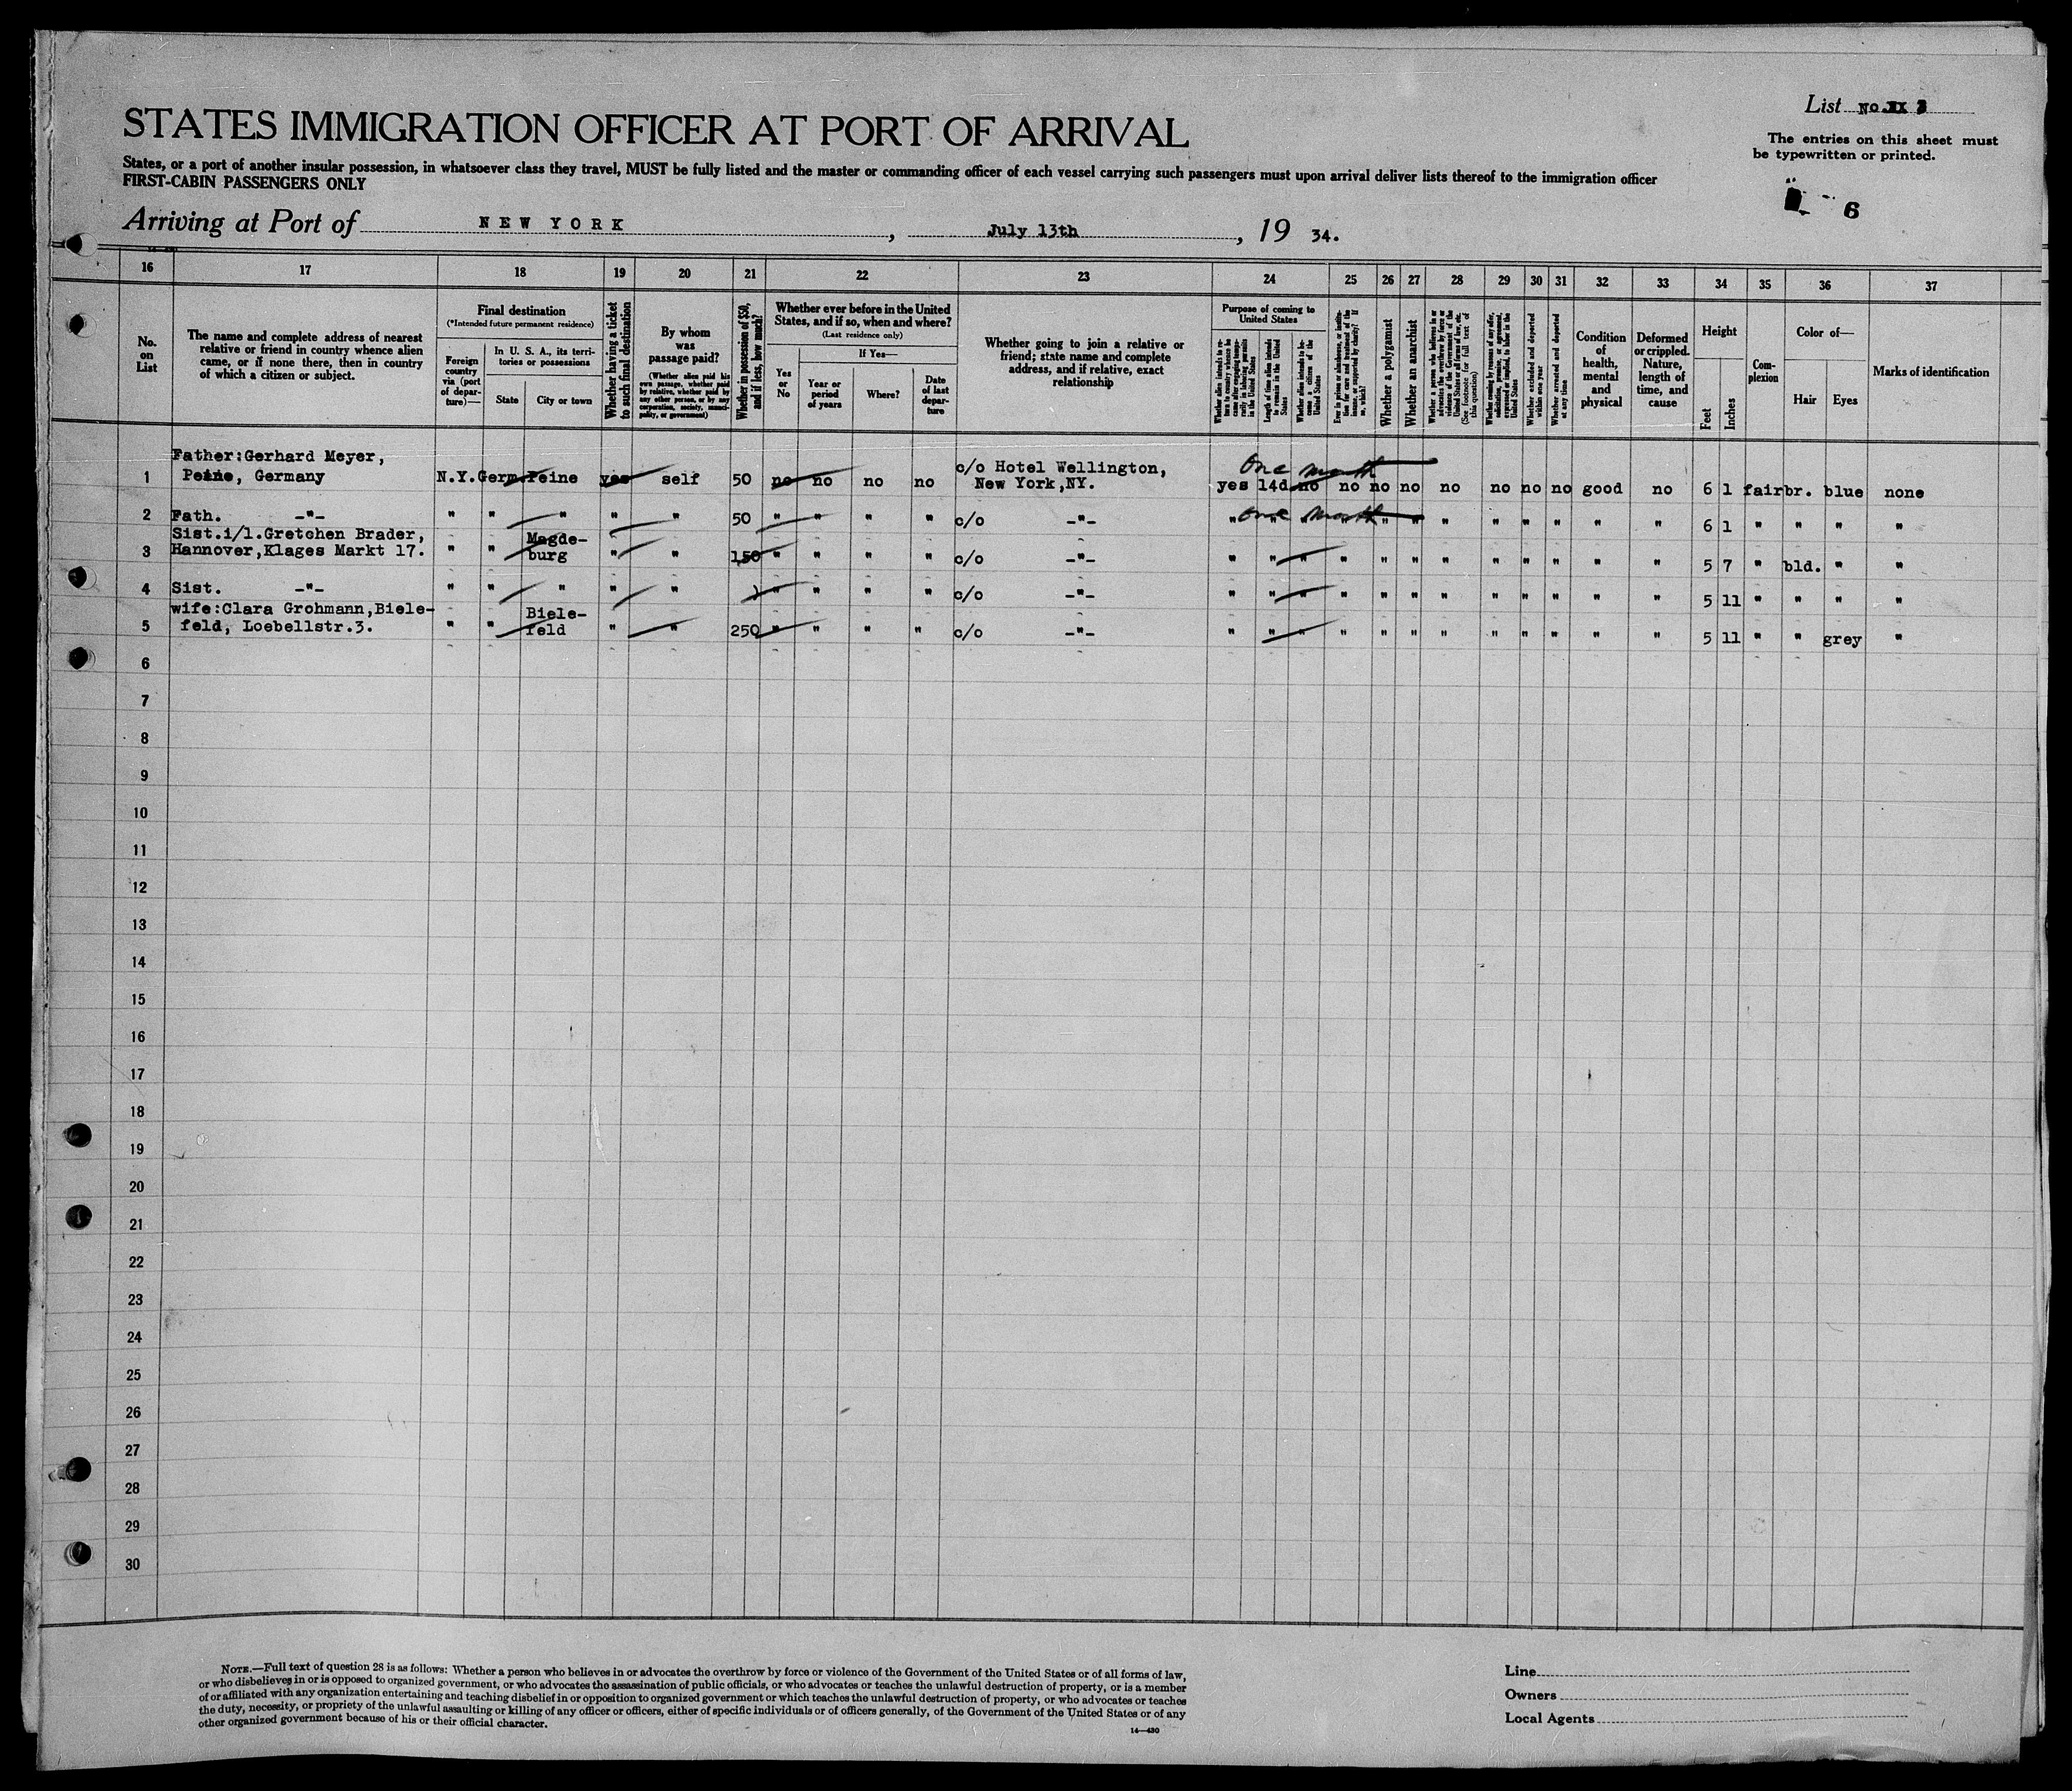 List No. 3
STATES IMMIGRATION OFFICER AT PORT OF ARRIVAL
The entries on this sheet must
be typewritten or printed.
States, or a port of another insular possession, in whatsoever class they travel, MUST be fully listed and the master or commanding officer of each vessel carrying such passengers must upon arrival deliver lists thereof to the immigration officer
FIRST-CABIN PASSENGERS ONLY
6
Arriving at Port of NEW YORK, July 13th, 19 34.
16 17 18 19 20 21 22 23 24 25 26 27 28 29 30 31 32 33 34 35 36 37
No.
on
List
The name and complete address of nearest
relative or friend in country whence alien
came, or if none there, then in country
of which a citizen or subject.
Final destination
(*Intended future permanent residence)
Foreign
country
via (port
of depar-
ture)—
In U. S. A., its terri-
tories or possessions
State
City or town
Whether having a ticket
to such final destination
By whom
was
passage paid?
(Whether alien paid his
own passage, whether paid
by relative, whether paid by
any other person, or by any
corporation, society, munici-
pality, or government)
Whether in possession of $50,
and if less, how much?
Whether ever before in the United
States, and if so, when and where?
(Last residence only)
Yes
or
No
If Yes—
Year or
period
of years
Where?
Date
of last
depar-
ture
Whether going to join a relative or
friend; state name and complete
address, and if relative, exact
relationship
Purpose of coming to
United States
Whether alien intends to re-
turn to country whence he
came after engaging tempo-
rarily in laboring pursuits
in the United States
Length of time alien intends
to remain in the United
States
Whether alien intends to be-
come a citizen of the
United States
Ever in prison or almshouse, or institu-
tion for care and treatment of the
insane, or supported by charity? If
so, which?
Whether a polygamist
Whether an anarchist
Whether a person who believes in or
advocates the overthrow by force or
violence of the Government of the
United States or all forms of law, etc.
(See footnote for full text of
this question)
Whether coming by reason of any offer,
solicitation, promise, or agreement,
expressed or implied, to labor in the
United States
Whether excluded and deported
within one year
Whether arrested and deported
at any time
Condition
of
health,
mental
and
physical
Deformed
or crippled.
Nature,
length of
time, and
cause
Height
Feet
Inches
Com-
plexion
Color of—
Hair
Eyes
Marks of identification
Father:Gerhard Meyer,
1 Peine, Germany N.Y. Germ. Peine yes self 50 no no no no c/o Hotel Wellington,
New York,NY. one month
yes 14d no no no no no no no no good no 6 1 fair br. blue none
2 Fath. -"- " " " " " 50 " " " " c/o -"- one month
" " " " " " " " " " " " 6 1 " " " "
Sist.i/l.Gretchen Brader,
3 Hannover,Klages Markt 17. " " Magde-
burg " " 150 " " " " c/o -"- " " " " " " " " " " " " 5 7 " bld. " "
4 Sist. -"- " " " " " ) " " " " c/o -"- " " " " " " " " " " " " 5 11 " " " "
wife:Clara Grohmann,Biele-
5 feld, Loebellstr.3. " " Biele-
feld " " 250 " " " " c/o -"- " " " " " " " " " " " " 5 11 " " grey "
6
7
8
9
10
11
12
13
14
15
16
17
18
19
20
21
22
23
24
25
26
27
28
29
30
NOTE.—Full text of question 28 is as follows: Whether a person who believes in or advocates the overthrow by force or violence of the Government of the United States or of all forms of law,
or who disbelieves in or is opposed to organized government, or who advocates the assassination of public officials, or who advocates or teaches the unlawful destruction of property, or is a member
of or affiliated with any organization entertaining and teaching disbelief in or opposition to organized government or which teaches the unlawful destruction of property, or who advocates or teaches
the duty, necessity, or propriety of the unlawful assaulting or killing of any officer or officers, either of specific individuals or of officers generally, of the Government of the United States or of any
other organized government because of his or their official character.
14—430
Line
Owners
Local Agents